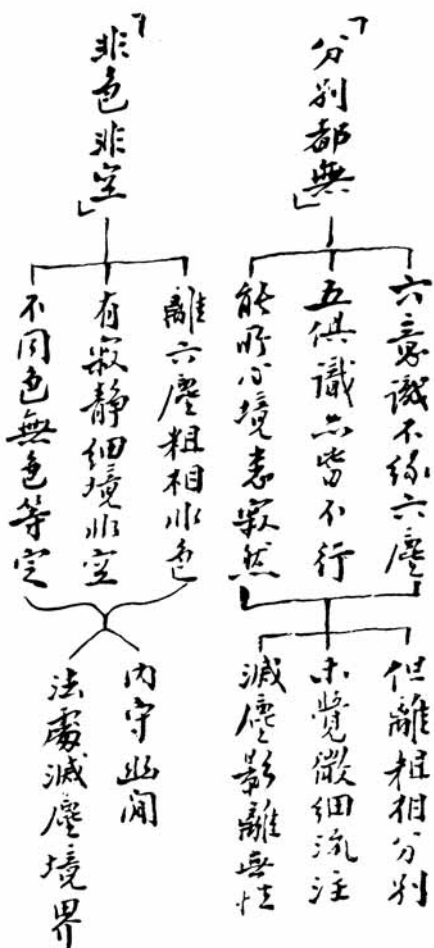 「分別都無」
六意識不緣六塵
五俱識亦皆不行
能所心境悉寂然
但離粗相分別
未覺微細流注
滅塵影離無性
「非色非空」
離六塵粗相非色
有寂靜細境非空
不同色無色等定
內守幽閒
法處滅塵境界